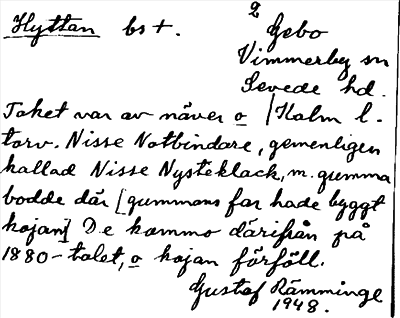 Hyttan bs +.
2
Gebo
Vimmerby sn
Sevede hd.
Taket var av näver o / Kalm l.
torv. Nisse Notbindare, gemenligen
kallad Nisse Nysteklack, m. gumma
bodde där [gummans far hade byggt
kojan] De kommo därifrån på
1880-talet, o kojan förföll.
Gustaf Rämminge
1948.